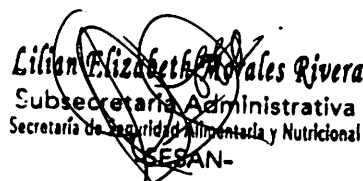 Lilian Elizabeth Morales Rivera
Subsecretaria Administrativa
Secretaría de Seguridad Alimentaria y Nutricional
-SESAN-